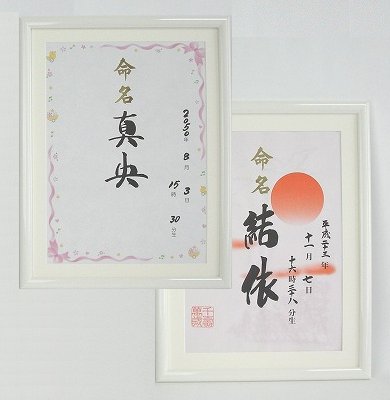 命名
真央
2050年
8月3日
15時
30分生
命名
結依
平成二十三年
十一月七日
十六時三十八分生